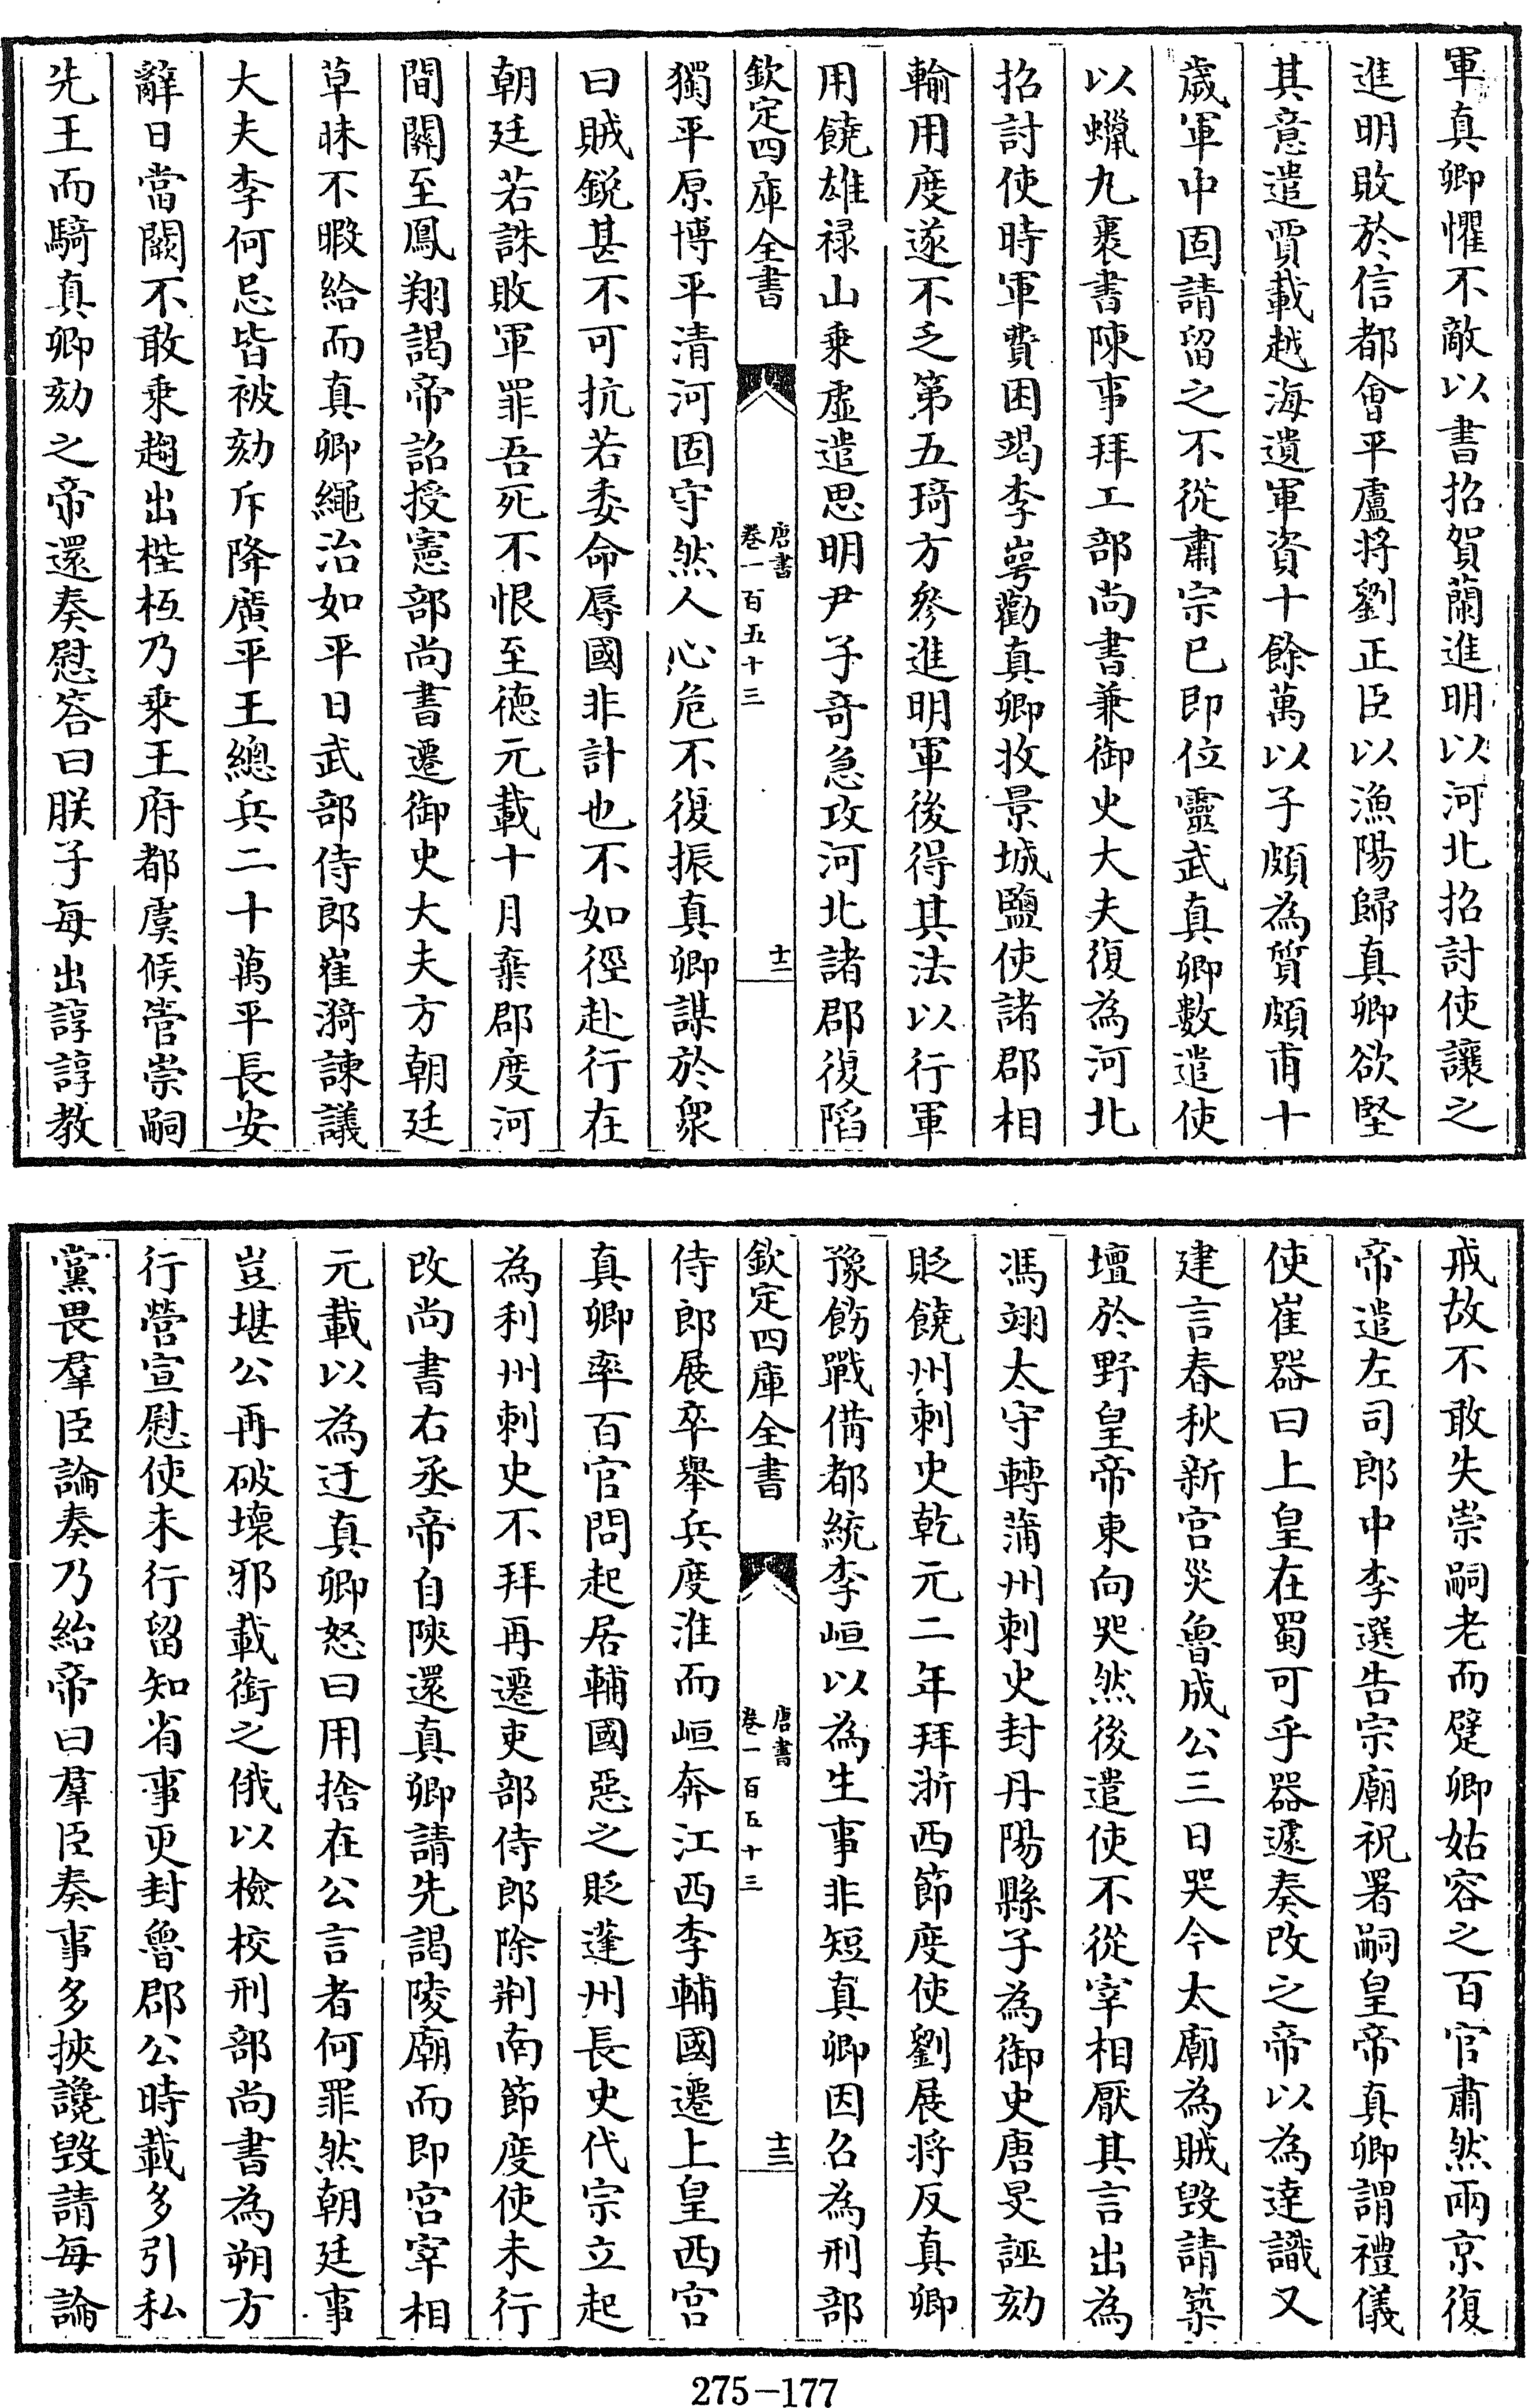 軍真卿懼不敵以書招賀蘭進明以河北招討使讓之
進明敗於信都會平盧將劉正臣以漁陽歸真卿欲堅
其意遣賈載越海遺軍資十餘萬以子頗為質頗甫十
歲軍中固請留之不從肅宗已即位靈武真卿數遣使
以蠟丸裹書陳事拜工部尚書兼御史大夫復為河北
招討使時軍費困竭李崿勸真卿收景城鹽使諸郡相
輸用度遂不乏第五琦方參進明軍後得其法以行軍
用饒雄禄山乗虛遣思明尹子奇急攻河北諸郡復陷
欽定四庫全書
唐書
卷一百五十三
十二
獨平原博平清河固守然人心危不復振真卿謀於衆
曰賊鋭甚不可抗若委命辱國非計也不如徑赴行在
朝廷若誅敗軍罪吾死不恨至德元載十月棄郡度河
間關至鳳翔謁帝詔授憲部尚書遷御史大夫方朝廷
草昧不暇給而真卿繩治如平日武部侍郎崔漪諫議
大夫李何忌皆被劾斥降廣平王總兵二十萬平長安
辭日當闕不敢乗趨出梐枑乃乗王府都虞候管崇嗣
先王而騎真卿劾之帝還奏慰答曰朕子每出諄諄教
戒故不敢失崇嗣老而躄卿姑容之百官肅然兩京復
帝遣左司郎中李選告宗廟祝署嗣皇帝真卿謂禮儀
使崔器曰上皇在蜀可乎器遽奏改之帝以為達識又
建言春秋新宫災魯成公三日哭今太廟為賊毀請築
壇於野皇帝東向哭然後遣使不從宰相厭其言出為
馮翊太守轉蒲州刺史封丹陽縣子為御史唐旻誣劾
貶饒州刺史乾元二年拜浙西節度使劉展將反真卿
豫飭戰備都統李峘以為生事非短真卿因召為刑部
欽定四庫全書
唐書
卷一百五十三
十三
侍郎展卒舉兵度淮而峘奔江西李輔國遷上皇西宫
真卿率百官問起居輔國惡之貶蓬州長史代宗立起
為利州刺史不拜再遷吏部侍郎除荆南節度使未行
改尚書右丞帝自陜還真卿請先謁陵廟而即宫宰相
元載以為迂真卿怒曰用捨在公言者何罪然朝廷事
豈堪公再破壞邪載銜之俄以檢校刑部尚書為朔方
行營宣慰使未行留知省事更封魯郡公時載多引私
黨畏羣臣論奏乃紿帝曰羣臣奏事多挾讒毀請每論
275-177